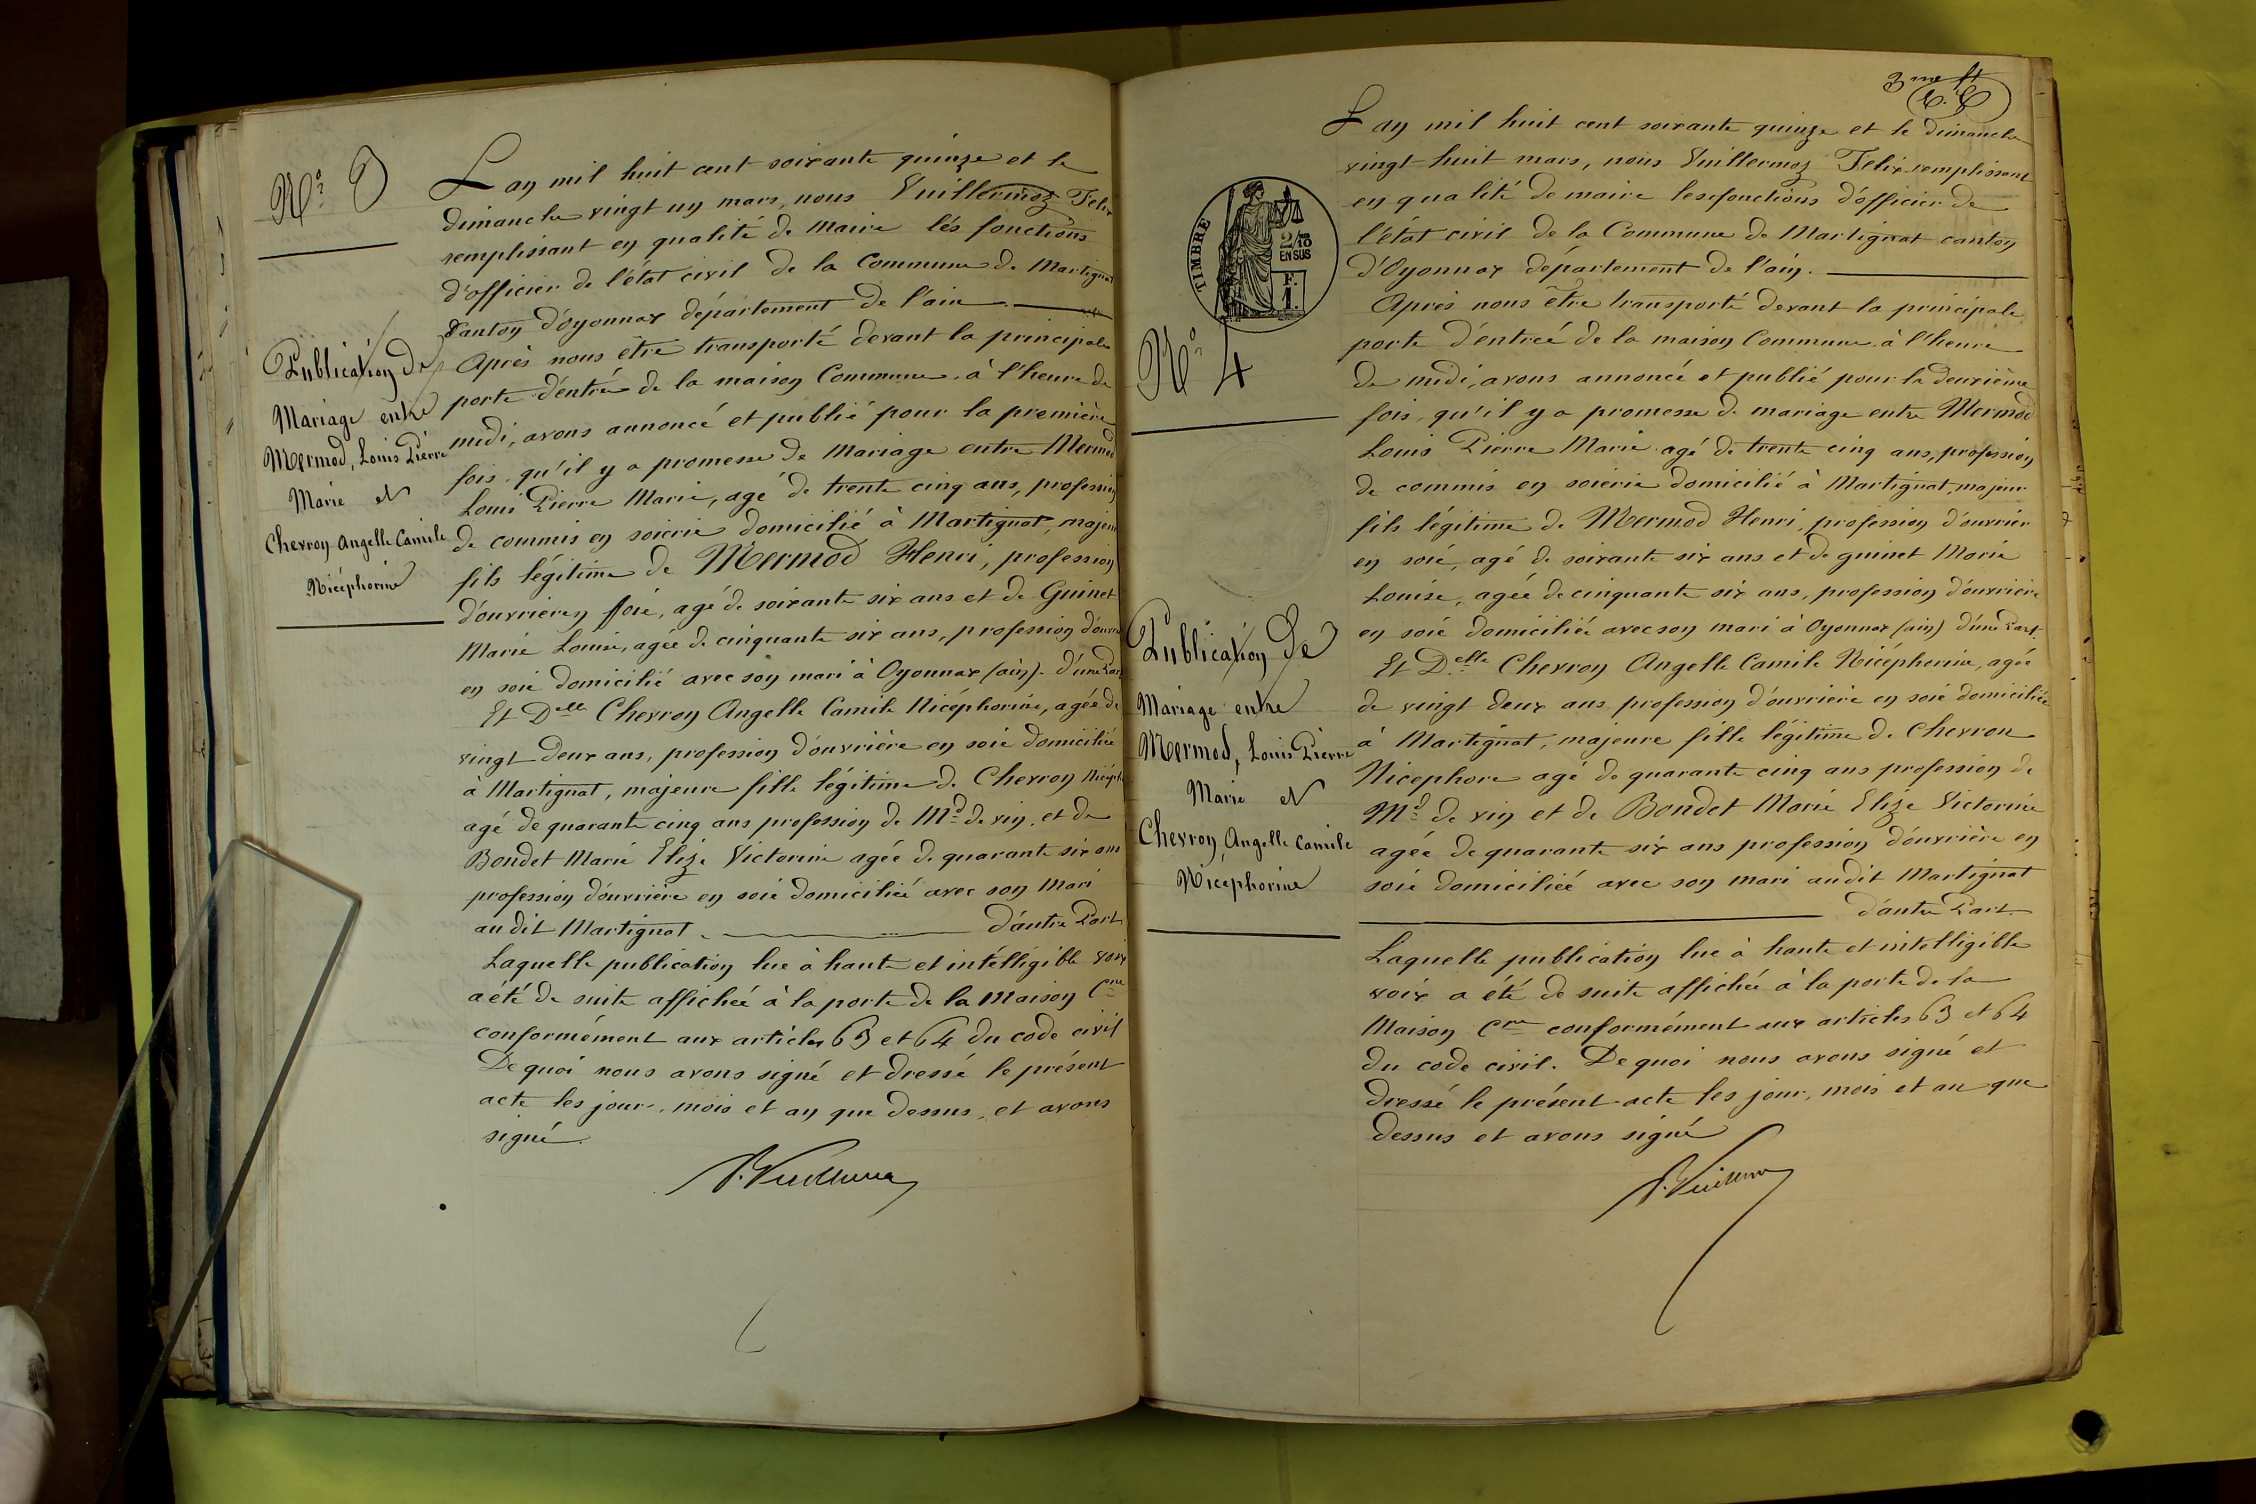 Nº 3
Publication de
Mariage entre
Mermod, Louis Pierre
Marie et
Chevron Angelle Camile
Nicéphorine
L'an mil huit cent soixante quinze et le
dimanche vingt un mars, nous Vuillermoz Felix
remplissant en qualité de Maire lés fonctions
d'officier de l'état civil de la Commune de Martignat
Canton d'Oyonnax département de l'ain.
Après nous être transporté devant la principale
porte d'entrée de la maison Commune à l'heure de
midi, avons annoncé et publié pour la première
fois, qu'il y a promesse de Mariage entre Mermod
Louis Pierre Marie, agé de trente cinq ans, profession
de commis en soierie domicilié à Martignat, majeur
fils légitime de Mermod Henri, profession
d'ouvrier en soie, agé de soixante six ans et de Guinet
Marie Louise, agée de cinquante six ans, profession d'ouvrière
en soie domicilié avec son mari à Oyonnax (ain). d'une Part
Et Delle Chevron Angelle Camile Nicéphorine, agée de
vingt deux ans, profession d'ouvrière en soie domiciliée
à Martignat, majeure fille légitime de Chevron Nicéph
agé de quarante cinq ans profession de Md de vin, et de
Bondet Marie Elize Victorine agée de quarante six ans
profession d'ouvrière en soie domiciliée avec son Mari
audit Martignat. d'autre Part
Laquelle publication lue à haute et intélligible voix
a été de suite affichée à la porte de la Maison Cne
conformément aux articles 63 et 64 du code civil
De quoi nous avons signé et dressé le présent
acte les jour, mois et an que dessus, et avons
signé.
F. Vuillermoz
3me ft
TIMBRE
2/10
EN SUS
F.
1.
Nº 4
Publication de
Mariage entre
Mermod, Louis Pierre
Marie et
Chevron, Angelle Camile
Nicephorine
L'an mil huit cent soixante quinze et le dimanche
vingt huit mars, nous Vuillermoz Felix remplissant
en qualité de maire les fonctions d'officier de
l'état civil de la Commune de Martignat canton
d'Oyonnax département de l'ain.
Après nous être transporté devant la principale
porte d'entreé de la maison Commune à l'heure
de midi, avons annoncé et publié pour la deuxième
fois, qu'il y a promesse de mariage entre Mermod
Louis Pierre Marie agé de trente cinq ans, profession
de commis en soierie domicilié à Martignat, majeur
fils légitime de Mermod Henri, profession d'ouvrier
en soie, agé de soixante six ans et de guinet Marie
Louise, agée de cinquante six ans, profession d'ouvrière
en soie domiciliée avec son mari à Oyonnax (ain) d'une Part.
Et Delle Chevron Angelle Camile Nicéphorine, agée
de vingt deux ans profession d'ouvrière en soie domiciliée
à Martignat, majeure fille légitime de Chevron
Nicephore agé de quarante cinq ans profession de
Md de vin et de Bondet Marie Elize Victorine
agée de quarante six ans profession d'ouvrière en
soie domiciliée avec son mari audit Martignat
d'autre Part.
Laquelle publication lue à haute et intelligible
voix a été de suite affichée à la porte de la
Maison Cne conformément aux articles 63 et 64
du code civil. De quoi nous avons signé et
dressé le présent acte les jour, mois et an que
dessus et avons signé
F. Vuillermoz